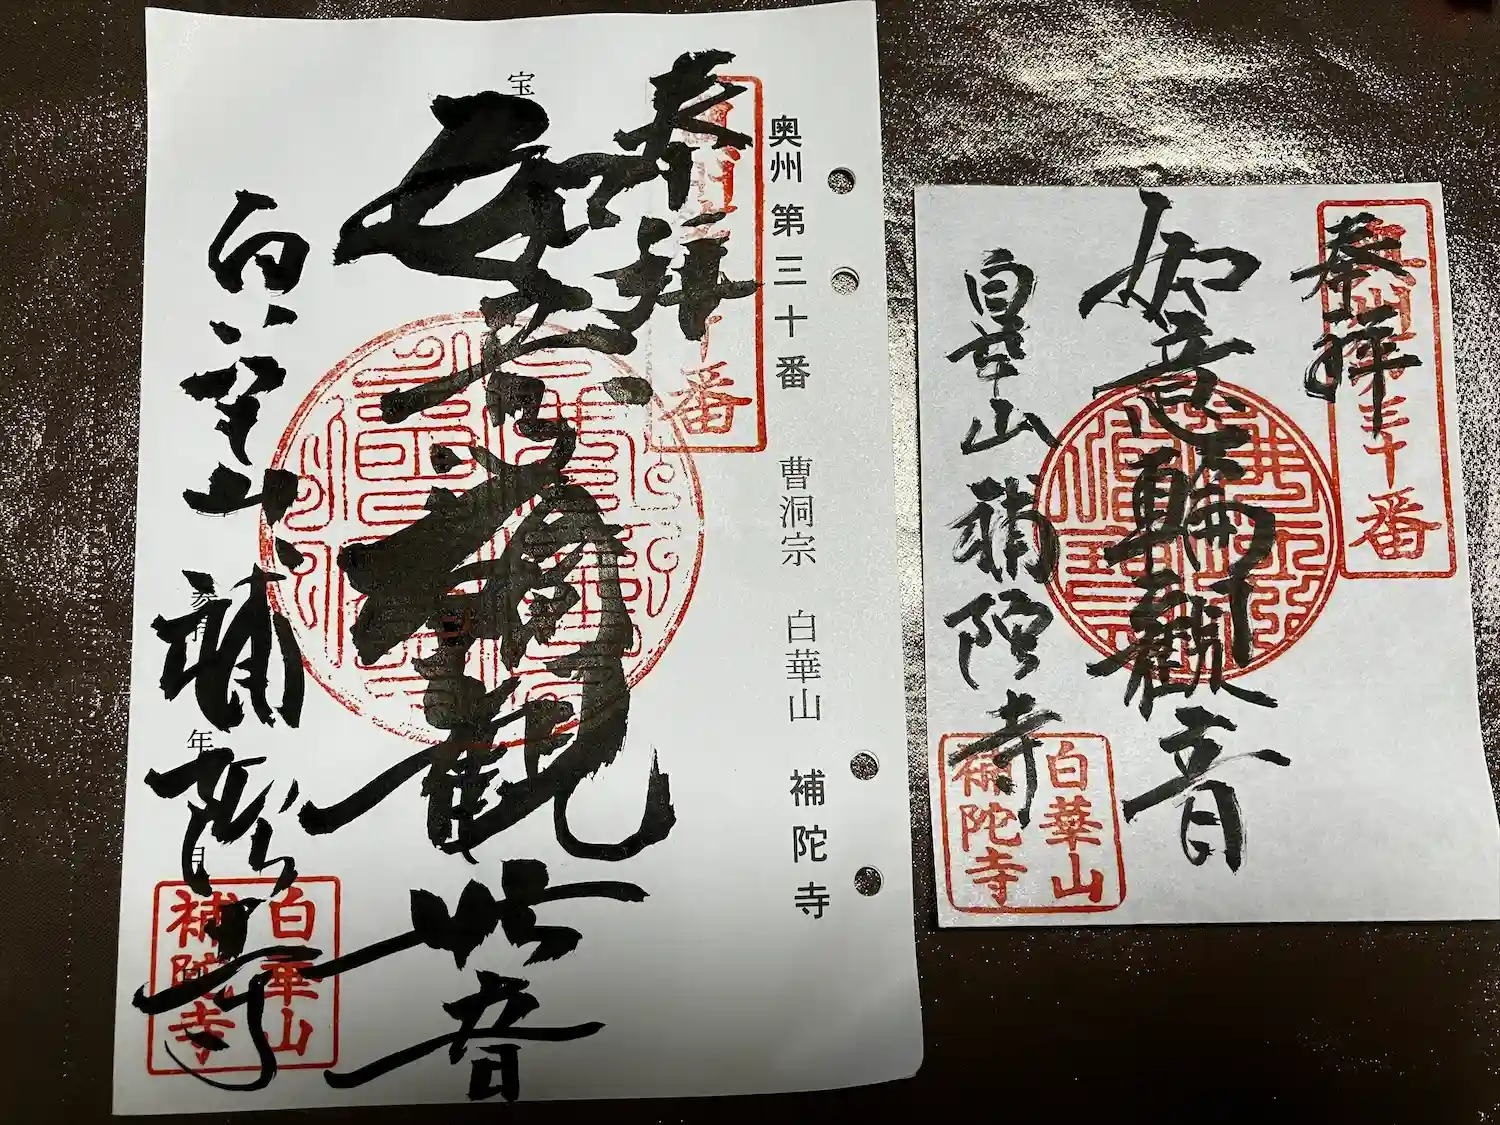 奥州第三十番 曹洞宗 白華山 補陀寺
奉拝
宝
如意輪観世音
白華山 補陀寺
年
月
奥州第三十番
白華山
補陀寺
奉拝
如意輪観音
白華山補陀寺
奥州第三十番
白華山
補陀寺